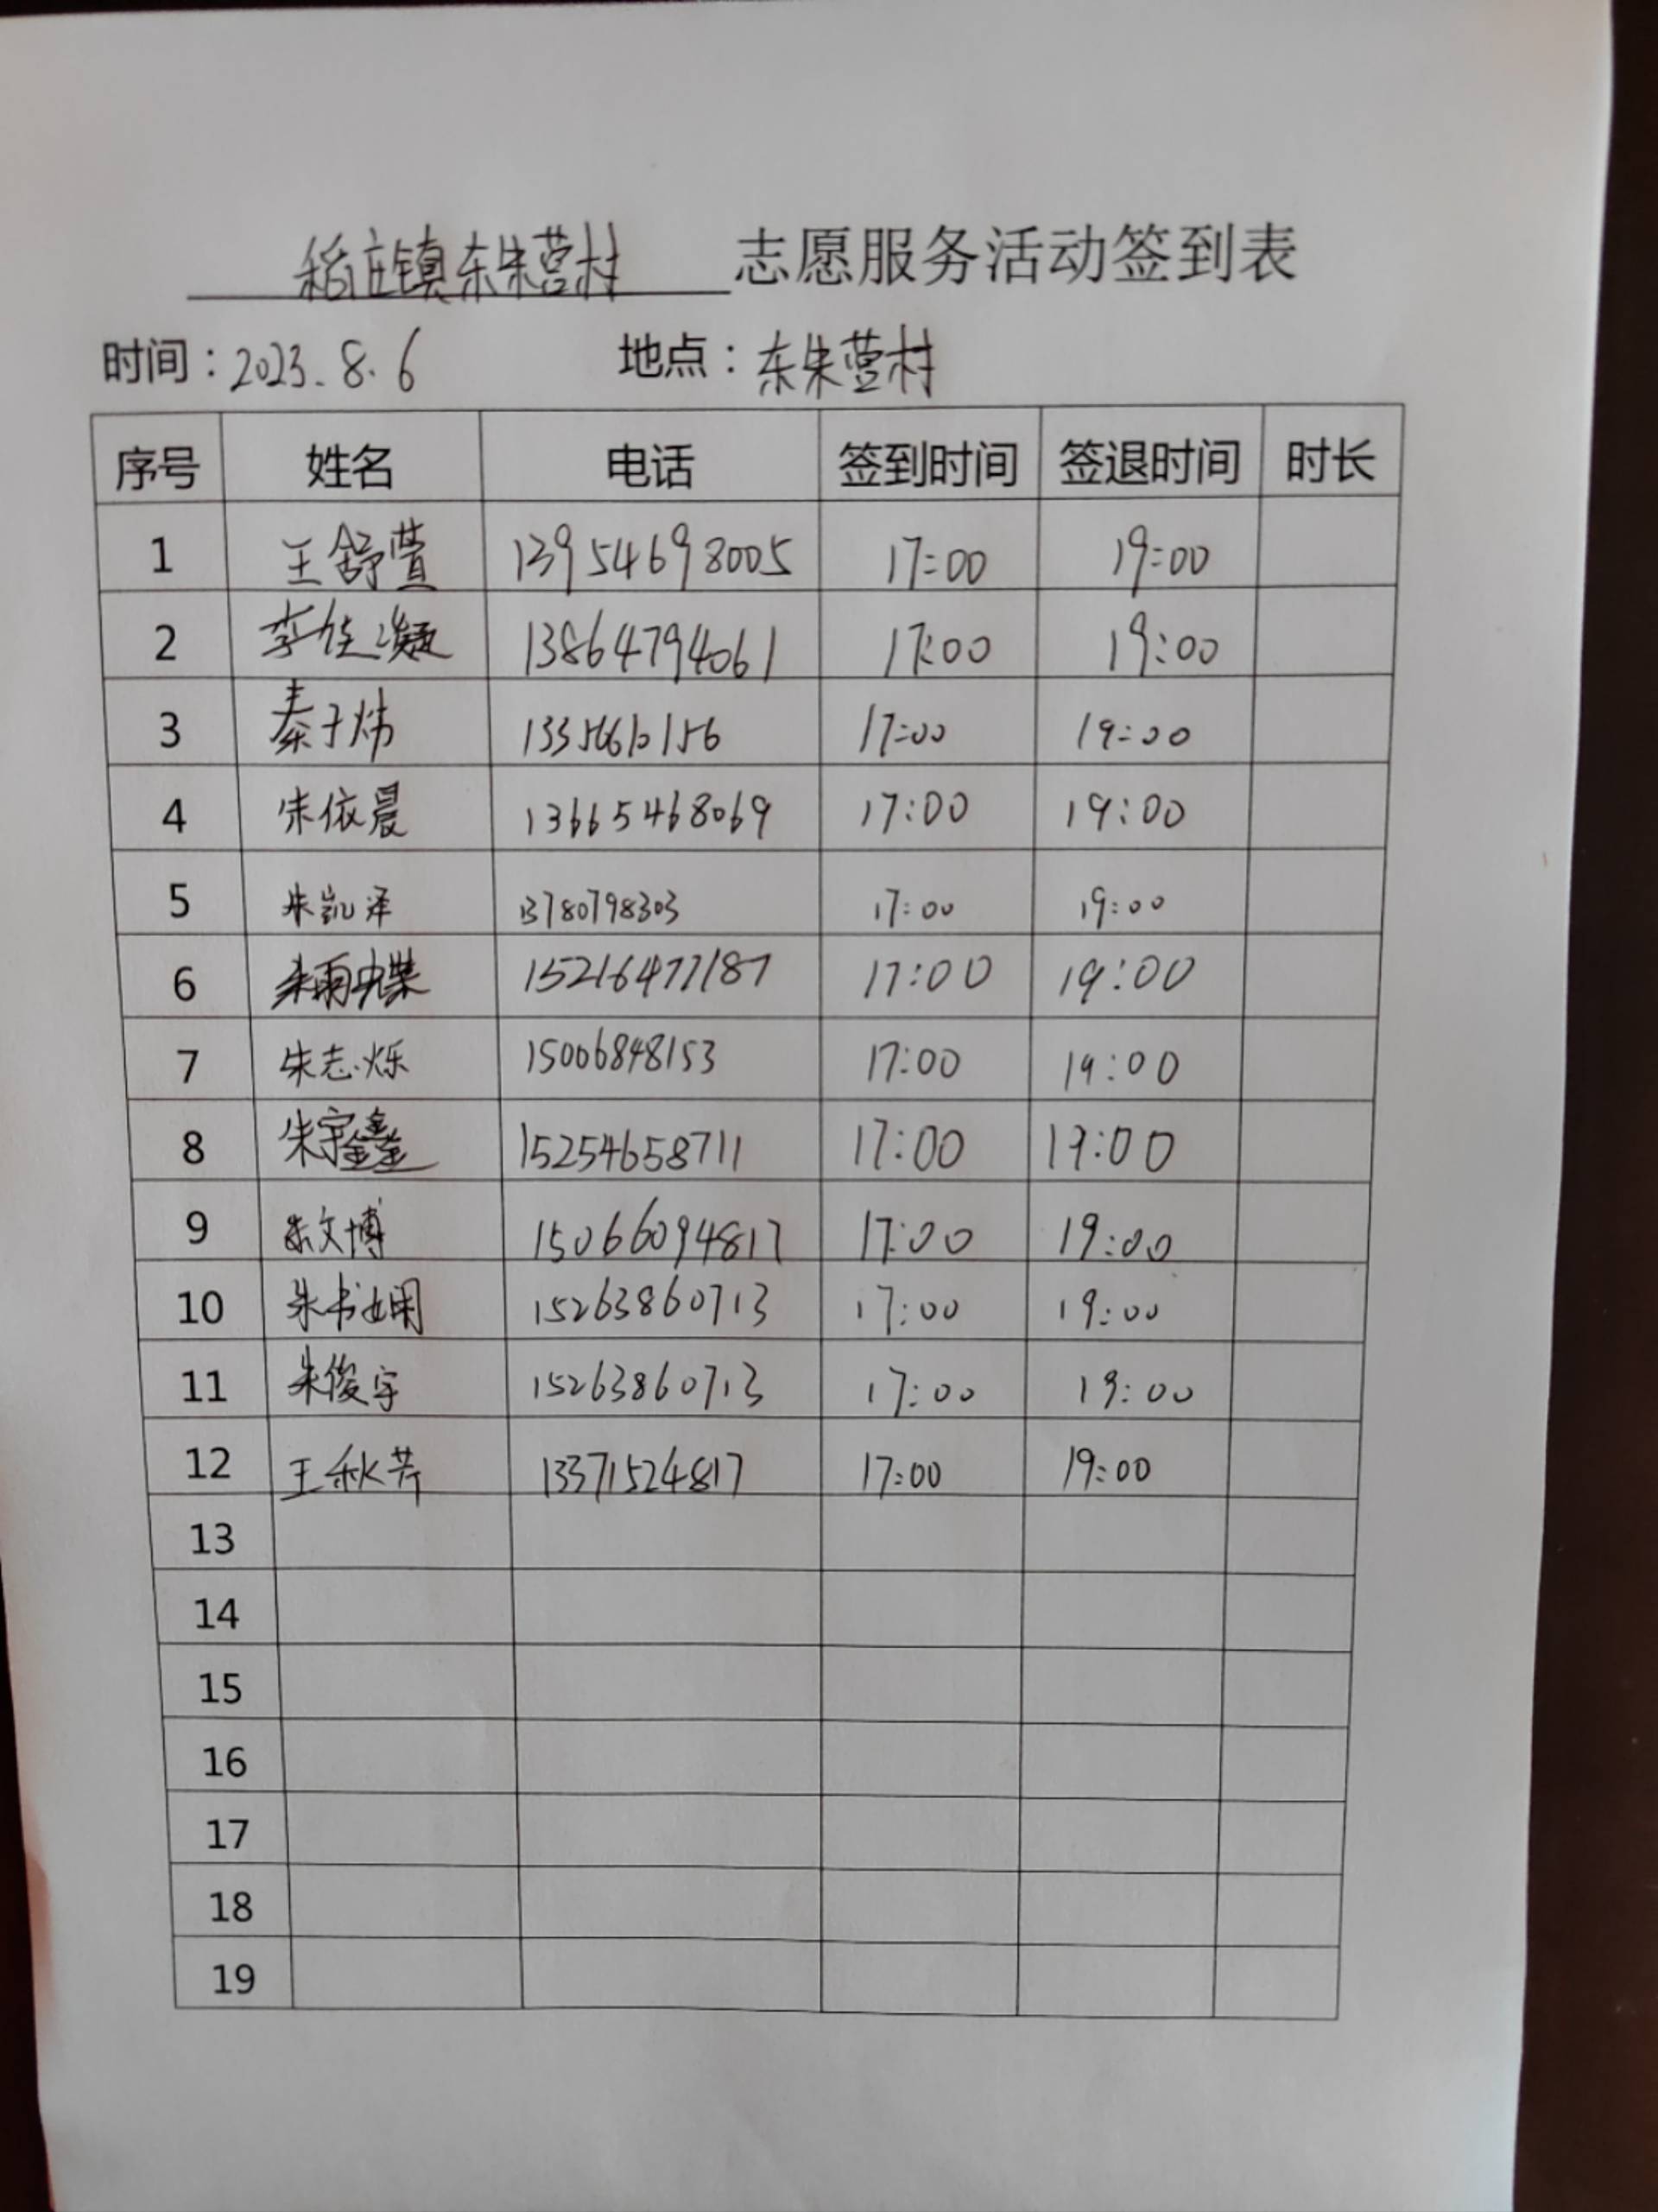 稻庄镇东朱营村 志愿服务活动签到表
时间：2023.8.6 地点：东朱营村
序号 姓名 电话 签到时间 签退时间 时长
1 王舒萱 13954698005 17:00 19:00
2 李佳凝 13864794061 17:00 19:00
3 秦子炜 17:00 19:00
4 朱依晨 13665468069 17:00 19:00
5 朱凯泽 13780798303 17:00 19:00
6 朱雨蝶 15216477187 17:00 19:00
7 朱志烁 15006848153 17:00 19:00
8 朱宇鑫 15254658711 17:00 19:00
9 朱文博 15066094817 17:00 19:00
10 朱书娴 15263860713 17:00 19:00
11 朱俊宇 15263860713 17:00 19:00
12 王秋芹 13371524817 17:00 19:00
13
14
15
16
17
18
19